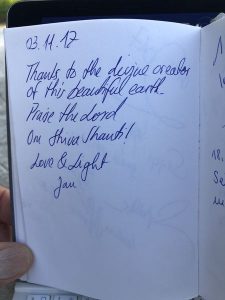 03.11.17
Thanks to the divine creator
of this beautiful earth.
Praise the Lord
Om Shiva Shanti!
Love & Light
Jan